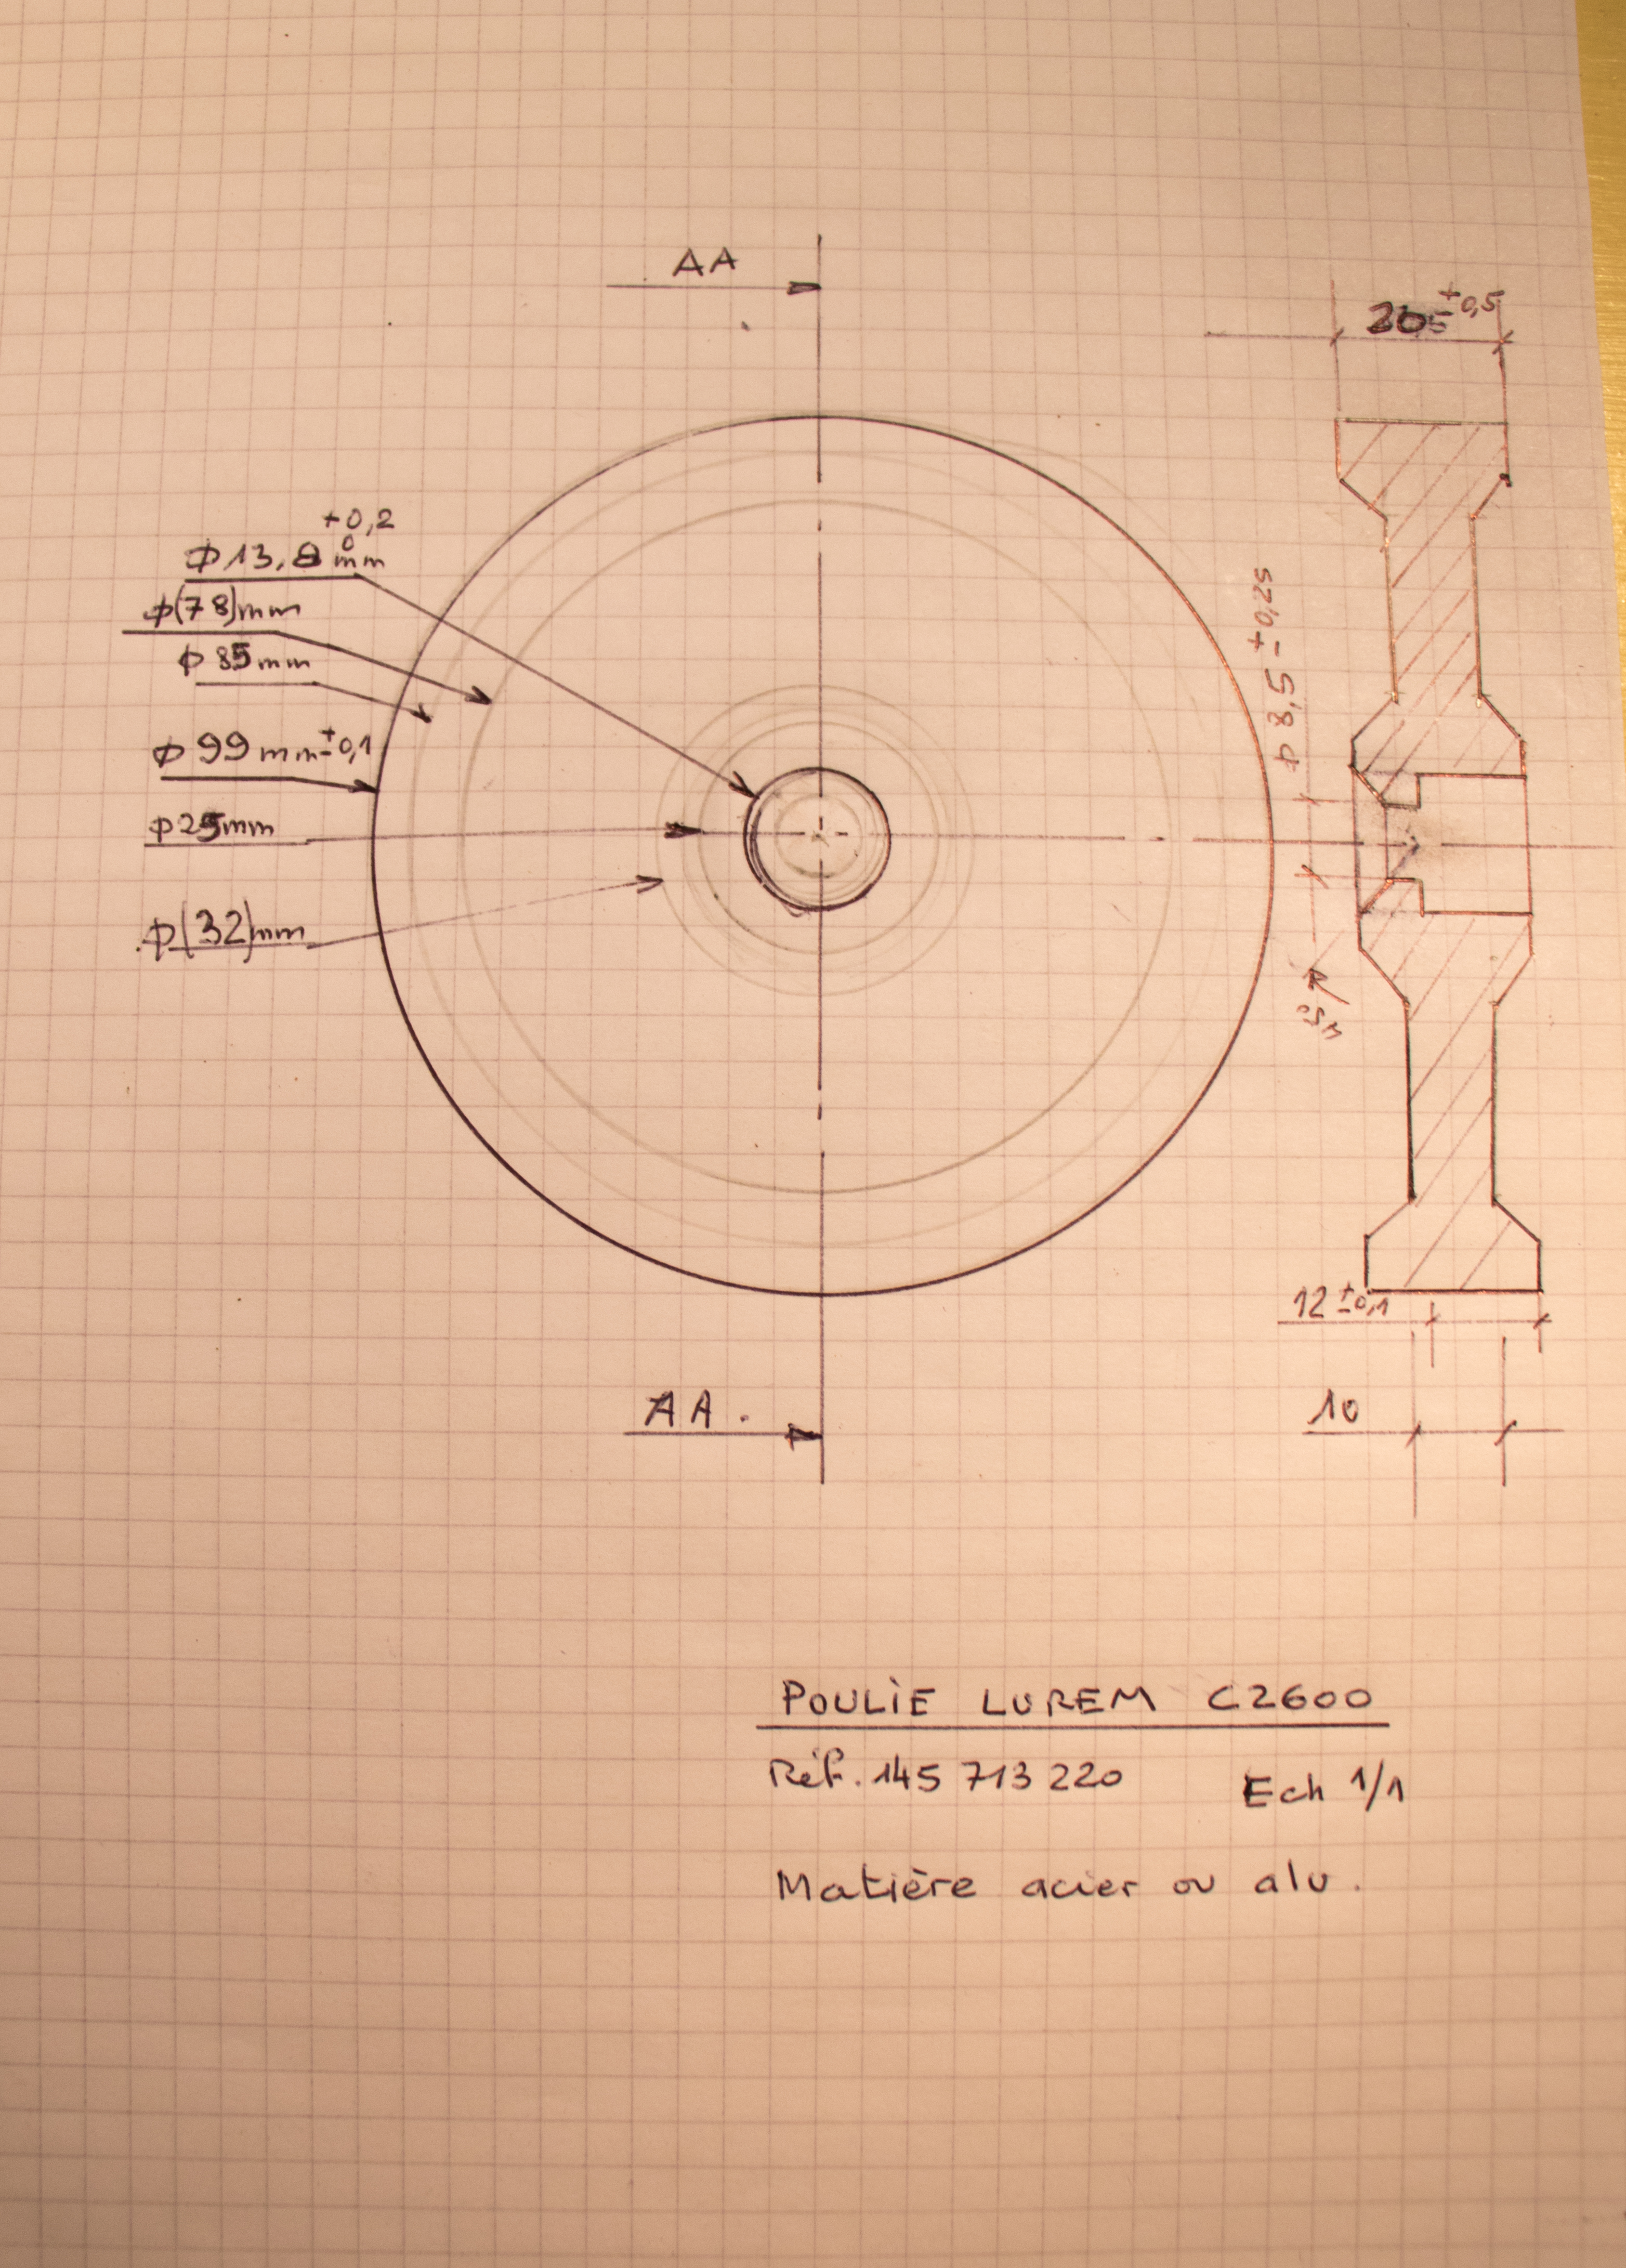 AA
±0,5
+0,2
0
Φ13,8 mm
Φ(78)mm
Φ 85mm
Φ 99 mm ±0,1
Φ25mm
Φ(32)mm
Φ 8,5 ±0,25
12 ±0,1
AA.
10
POULIE LUREM C2600
Réf. 145 713 220 Ech 1/1
Matière acier ou alu.